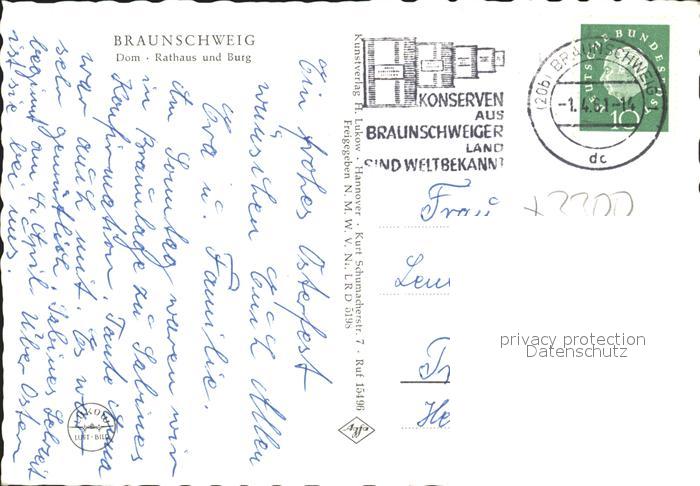 BRAUNSCHWEIG
Dom · Rathaus und Burg
Ein frohes Osterfest
wünschen Euch Allen
Eva u. Familie.
Am Sonntag waren wir
in Braunlage zu Sabines
Konfirmation. Tante
war auch mit. Es war
sehr gemütlich. Sabines
beginnt am 4. April. Über Ostern
ist sie bei uns.
LUFT-BILD
Kunstverlag H. Lukow · Hannover · Kurt Schumacherstr. 7 · Ruf 15496
Freigegeben N. M. W. V. Nr. LRD 5198
KONSERVEN
AUS
BRAUNSCHWEIGER
LAND
SIND WELTBEKANNT
(20b) BRAUNSCHWEIG
-1.4.61-14
dc
DEUTSCHE BUNDESPOST
10
Frau
privacy protection
Datenschutz